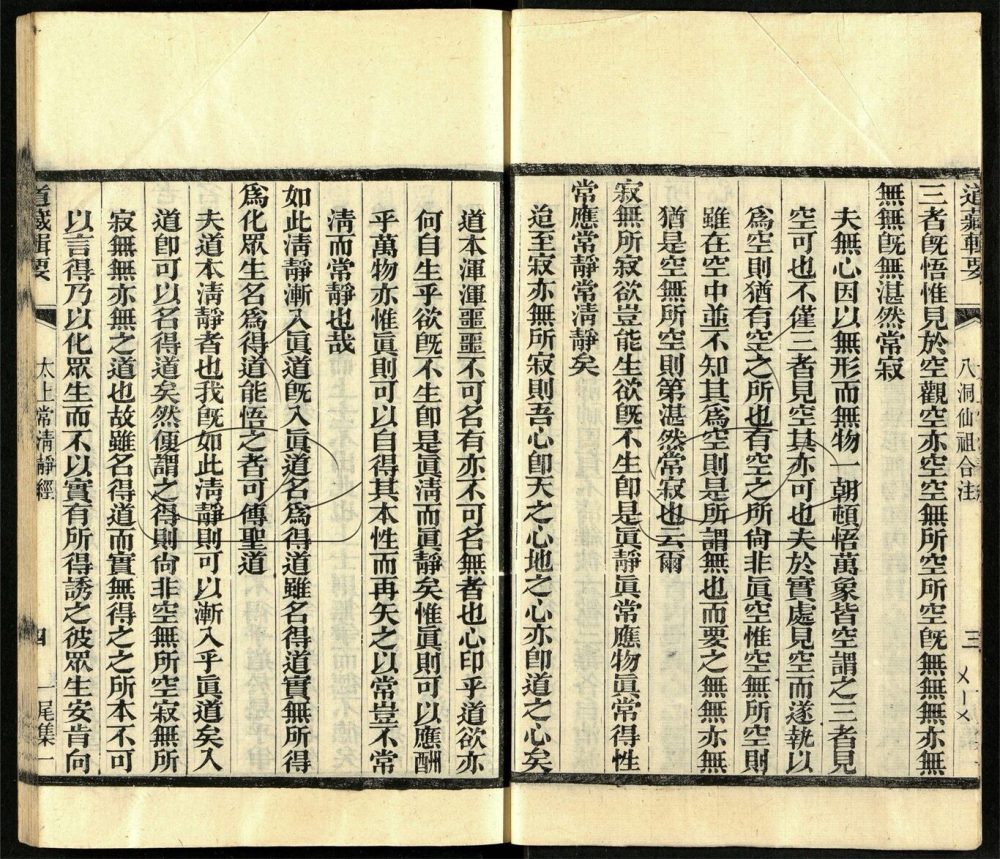 道藏輯要
八洞仙祖合注
三
三者旣悟惟見於空觀空亦空空無所空所空旣無無無亦無
無無旣無湛然常寂
夫無心因以無形而無物一朝頓悟萬象皆空謂之三者見
空可也不僅三者見空其亦可也夫於實處見空而遂執以
爲空則猶有空之所也有空之所尙非眞空惟空無所空則
雖在空中並不知其爲空則是所謂無也而要之無無亦無
猶是空無所空則第湛然常寂也云爾
寂無所寂欲豈能生欲旣不生卽是眞靜眞常應物眞常得性
常應常靜常淸靜矣
迨至寂亦無所寂則吾心卽天之心地之心亦卽道之心矣
道本渾渾噩噩不可名有亦不可名無者也心印乎道欲亦
何自生乎欲旣不生卽是眞淸而眞靜矣惟眞則可以應酬
乎萬物亦惟眞則可以自得其本性而再矢之以常豈不常
淸而常靜也哉
如此淸靜漸入眞道旣入眞道名爲得道雖名得道實無所得
爲化眾生名爲得道能悟之者可傳聖道
夫道本淸靜者也我旣如此淸靜則可以漸入乎眞道矣入
道卽可以名得道矣然便謂之得則尙非空無所空寂無所
寂無無亦無之道也故雖名得道而實無得之之所本不可
以言得乃以化眾生而不以實有所得誘之彼眾生安肯向
道藏輯要
太上常淸靜經
四
尾集一